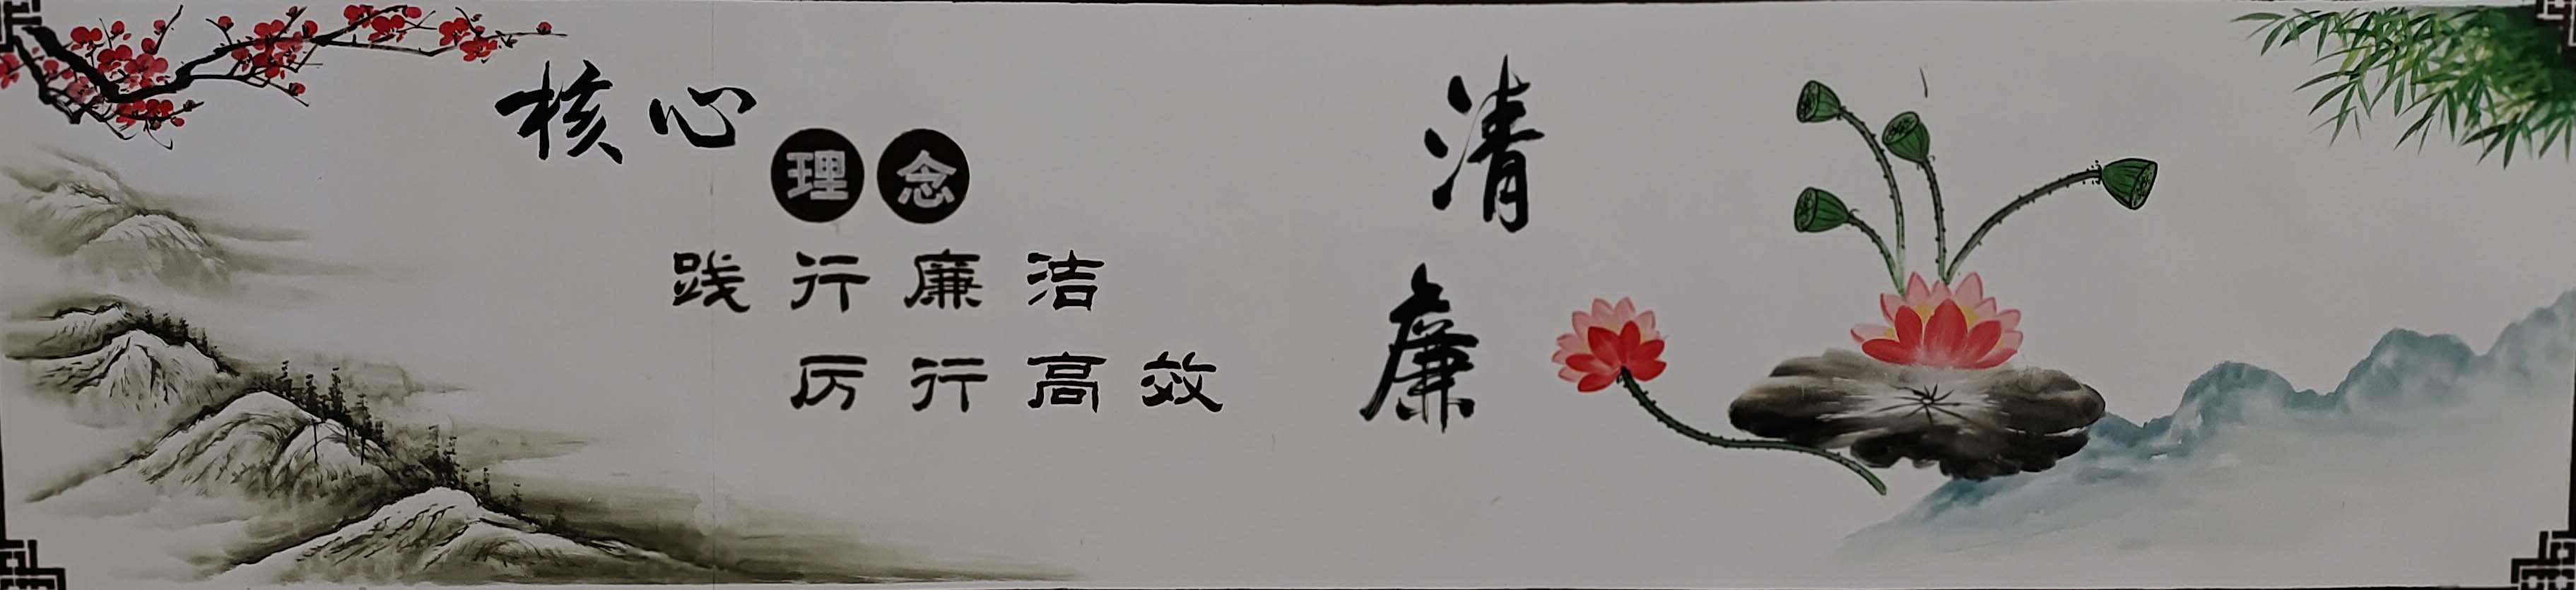 核心
理念
践行廉洁
厉行高效
清
廉